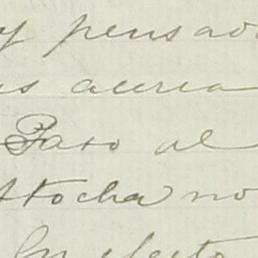 y pensado
us acerca
Paso al
Atocha no
En efecto